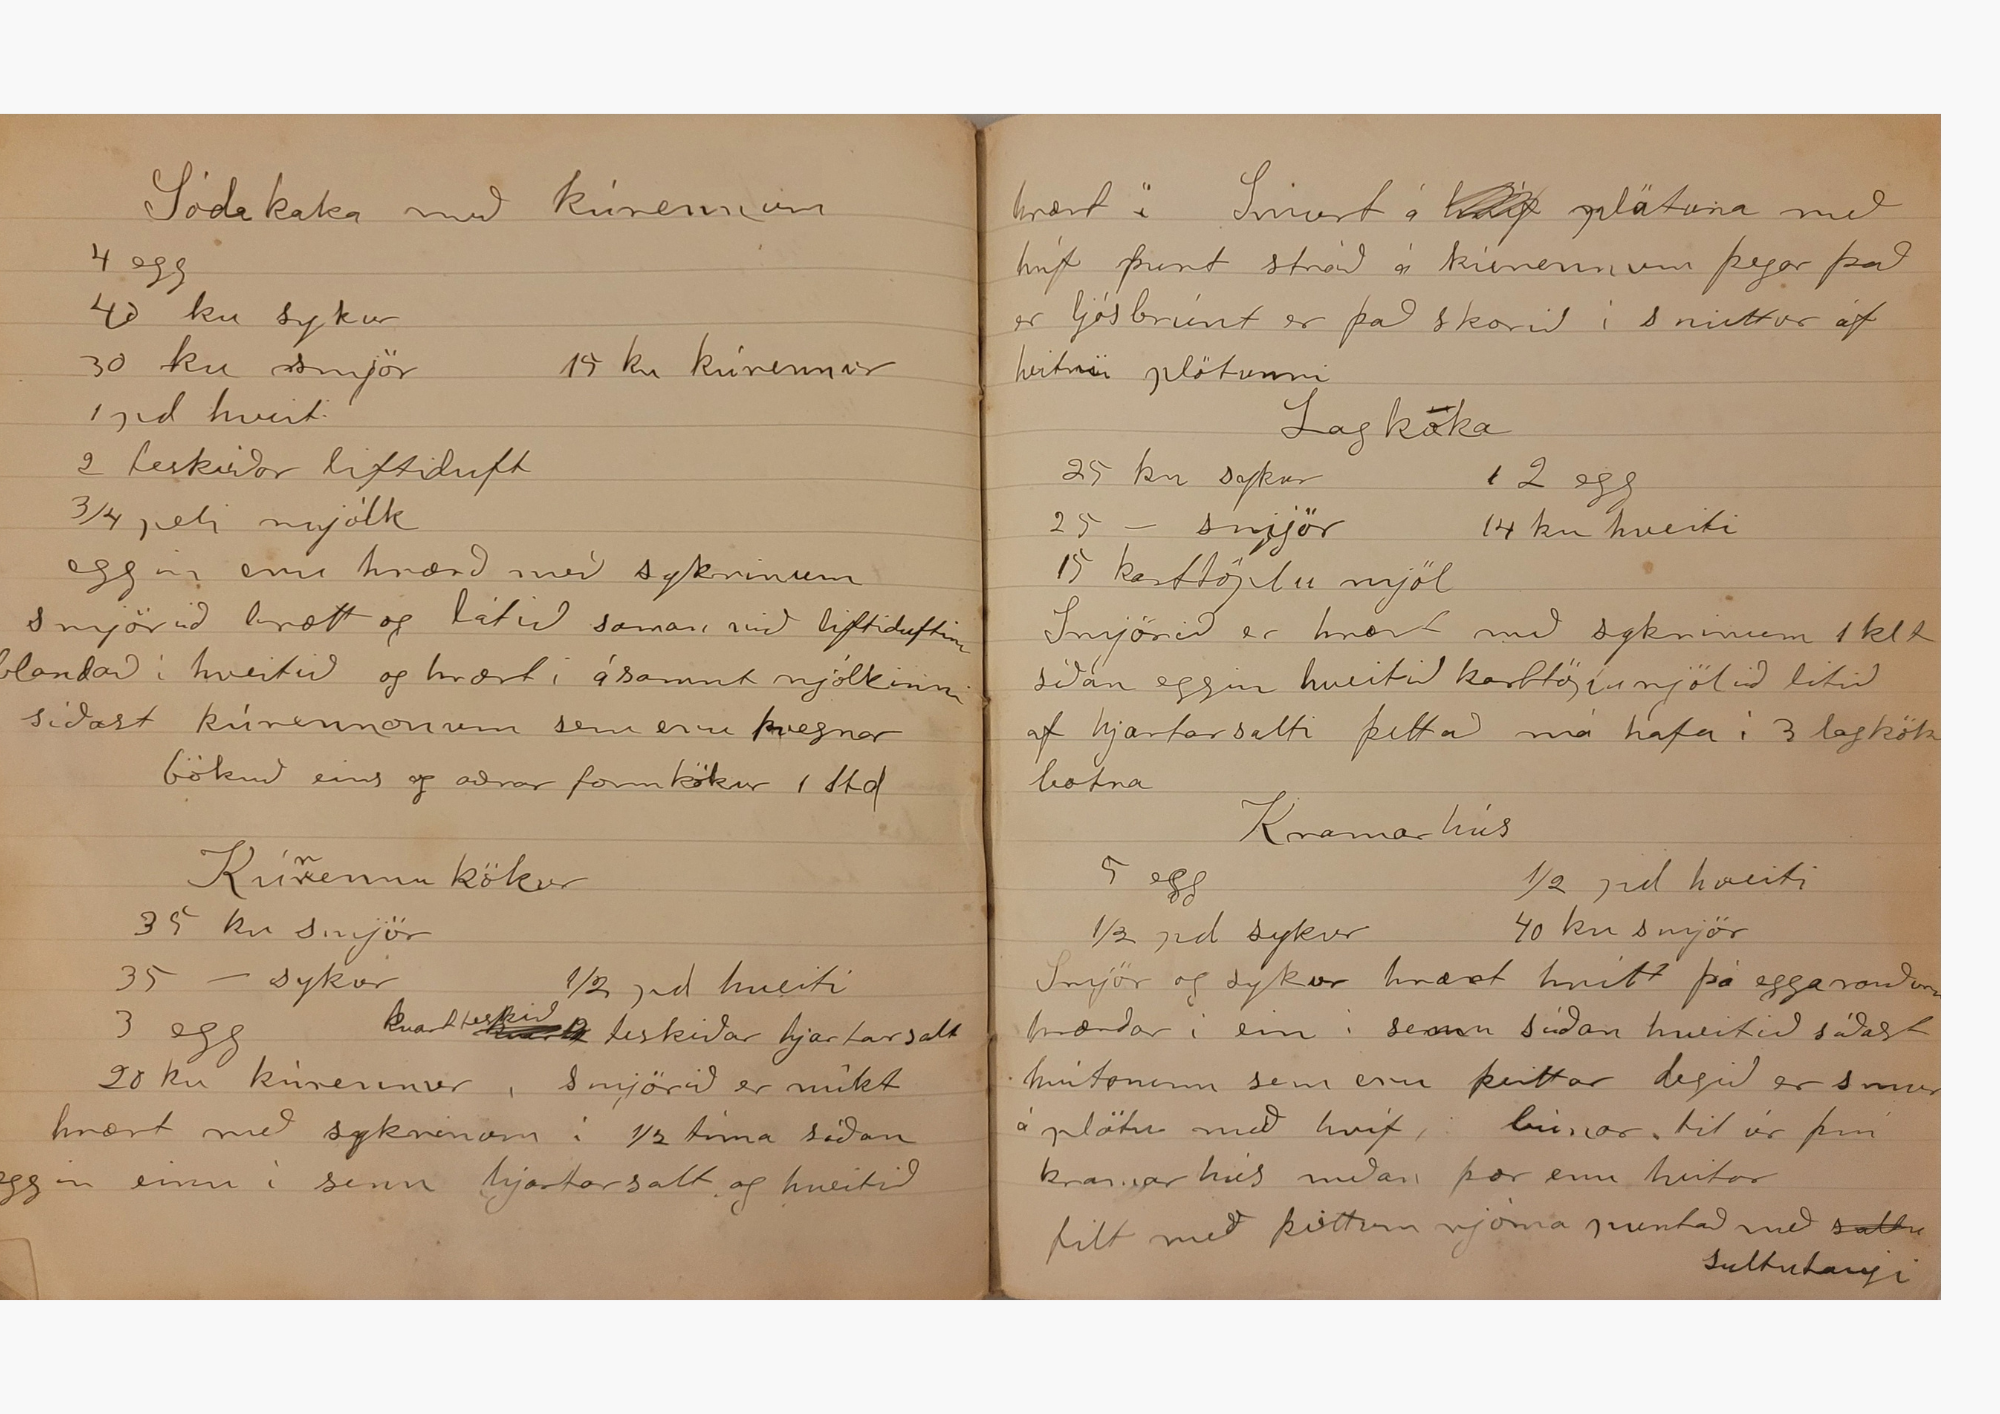 Sódakaka með kúrennum
4 egg
40 ku sykur
30 ku smjör 15 ku kúrennur
1 pd hveiti
2 teskeiðar liftiduft
3/4 peli mjólk
eggin eru hrærð með sykrinum
smjörið brætt og látið saman við liftiduftinu
blandað í hveitið og hrært í ásamnt mjólkinni
síðast kúrennonum sem eru þvegnar
bökuð eins og aðrar formkökur 1 std
Kúrennukökur
35 ku smjör
35 — sykur 1/2 pd hveiti
3 egg kvart teskeið teskeiðar hjartarsalt
20 ku kúrennur, smjörið er mikt
hrært með sykrinum í 1/2 tíma síðan
eggin einu í senn hjartarsalt og hveitið
hrært í Smurt á plötuna með
hníf þunt stráð á kúrennum þegar það
er ljósbrúnt er það skorið í snittur af
heitni plötunni
Lagkaka
25 ku sykur 1 2 egg
25 — smjör 14 ku hveiti
15 karttöplu mjöl
Smjörið er hrært með sykrinum 1 klt
síðan eggin hveitið karttöplumjölið litið
af hjartarsalti þettað má hafa í 3 lagkök
botna
Kramarhús
5 egg 1/2 pd hveiti
1/2 pd sykur 40 ku smjör
Smjör og sykur hrært hvítt þá eggarauðurnar
hrærðar í ein í senn síðan hveitið síðast
hvítonum sem eru þeittar degið er smur
á plötu með hníf, búnar til úr þin
kramarhús meðan þær eru heitar
filt með þeittum rjóma puntað með sultu
sultutaugi